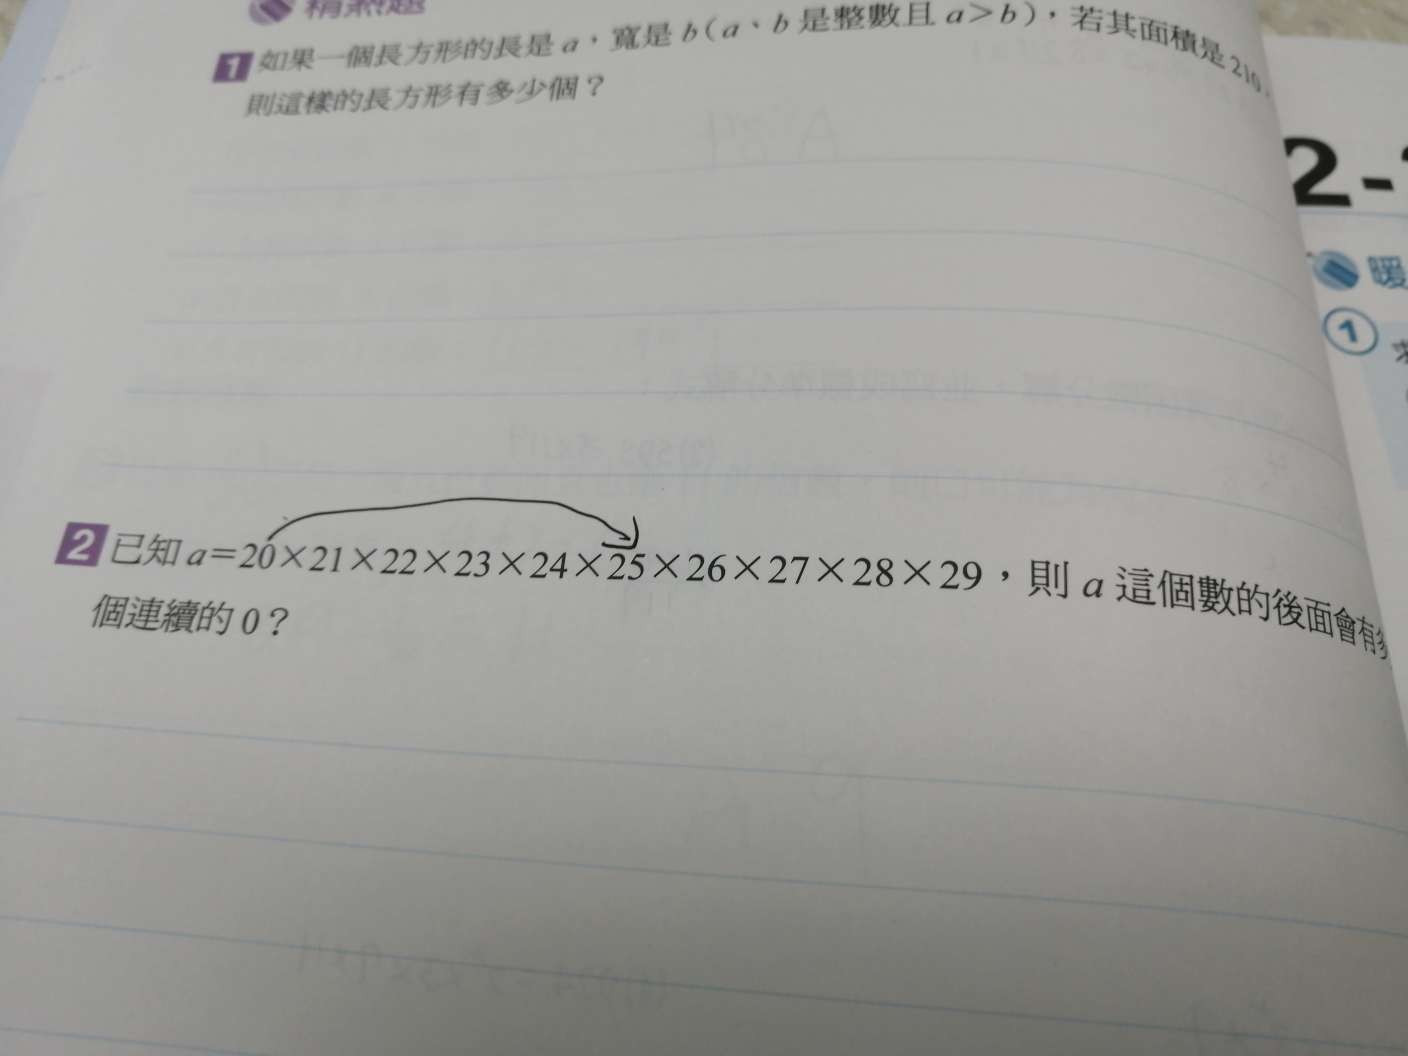 精熟題
1 如果一個長方形的長是 a，寬是 b（a、b 是整數且 a＞b），若其面積是 210，
則這樣的長方形有多少個？
2 已知 a＝20×21×22×23×24×25×26×27×28×29，則 a 這個數的後面會有多
個連續的 0？
2-
暖
1